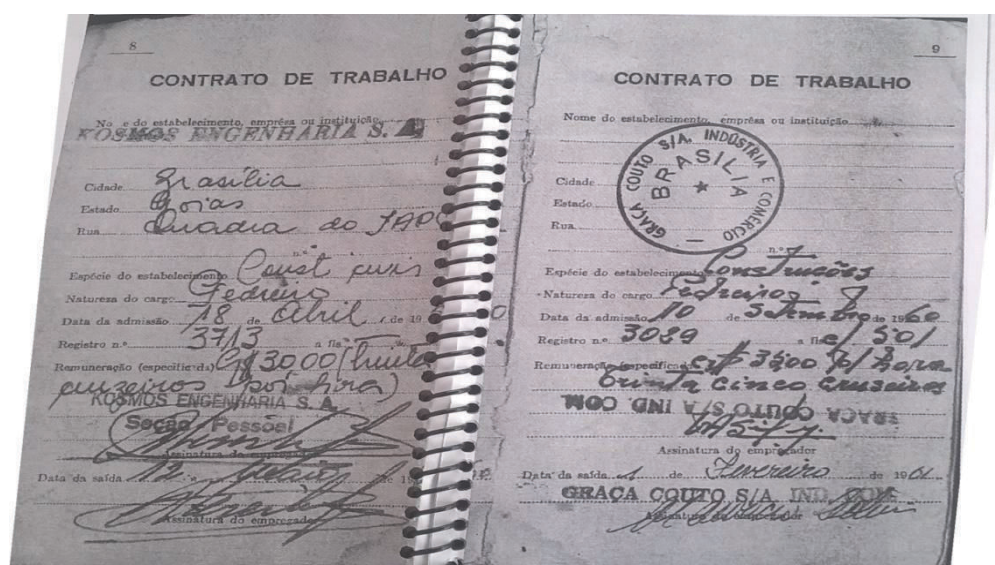 8
CONTRATO DE TRABALHO
No e do estabelecimento, emprêsa ou instituição
KOSMOS ENGENHARIA S. A.
Cidade Brasília
Estado Goias
Rua Quadra do IAPC
n.º
Espécie do estabelecimento Const civis
Natureza do cargo Pedreiro
Data da admissão 18 de Abril de 19 0
Registro n.º 3713 a fls.
Remuneração (especificada) Cr$ 30,00 (trinta
cruzeiros por hora)
KOSMOS ENGENHARIA S. A.
Seção Pessoal
Assinatura do empregador
Data da saída 12 de 19
Assinatura do empregador
9
CONTRATO DE TRABALHO
Nome do estabelecimento, emprêsa ou instituição
GRAÇA COUTO S/A. INDÚSTRIA E COMERCIO
BRASILIA
Cidade
Estado
Rua
n.º
Espécie do estabelecimento Construções
Natureza do cargo Pedreiro
Data da admissão 10 de Setembro de 1960
Registro n.º 3089 a fls.
Remuneração (especificada) Cr$ 3500 p/ hora
trinta cinco cruzeiros
GRAÇA COUTO S/A IND COM.
Assinatura do empregador
Data da saída 1 de Fevereiro de 1961
GRAÇA COUTO S/A IND. COM.
Assinatura do empregador